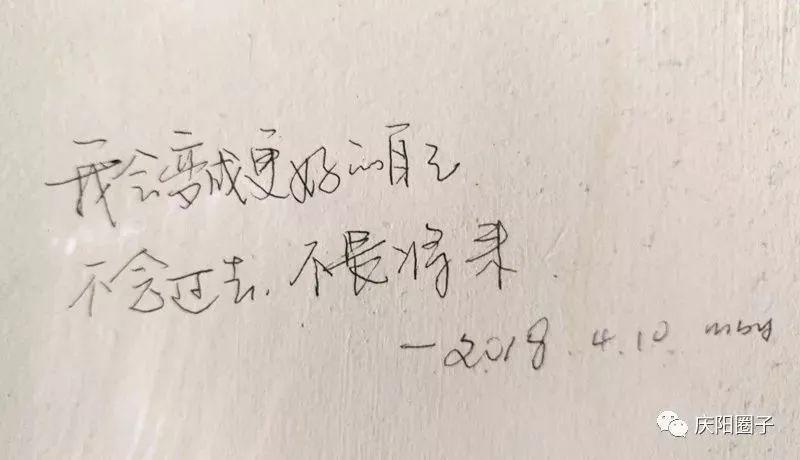 我会变成更好的自己
不念过去、不畏将来
—2018.4.10
庆阳圈子